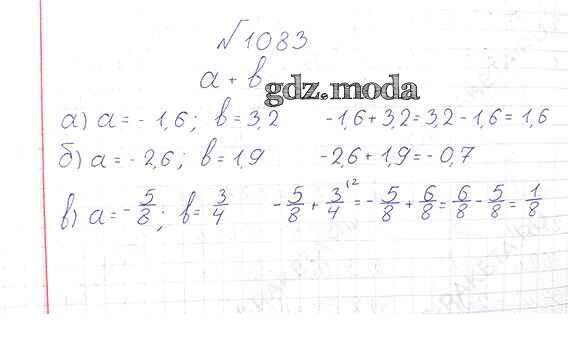 №1083
a + b
gdz.moda
а) a = - 1,6; b = 3,2 -1,6 + 3,2 = 3,2 - 1,6 = 1,6
б) a = - 2,6; b = 1,9 -2,6 + 1,9 = - 0,7
в) a = - 5/8; b = 3/4 - 5/8 + 3/4 ^(2 = - 5/8 + 6/8 = 6/8 - 5/8 = 1/8